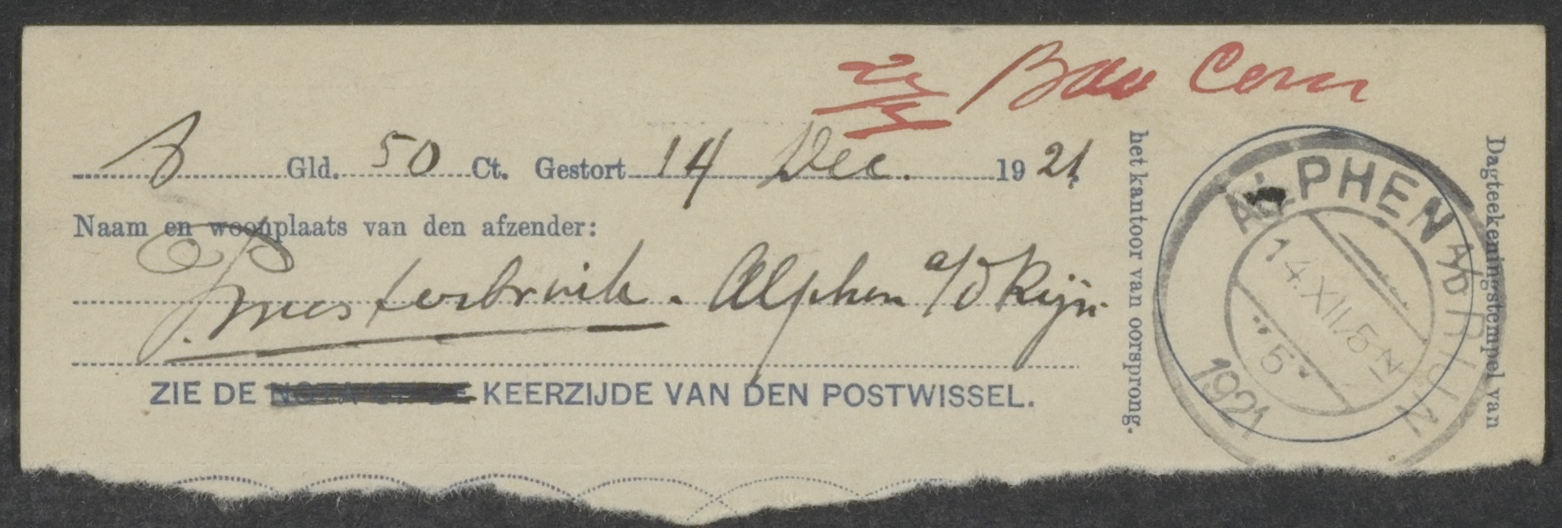 Bau Com
8 Gld. 50 Ct. Gestort 14 Dec. 1921.
Naam en woonplaats van den afzender:
Alphen a/d Rijn.
ZIE DE KEERZIJDE VAN DEN POSTWISSEL.
het kantoor van oorsprong.
Dagteekeningstempel van
ALPHEN A/D RIJN
14.XII.5-N
5
1921